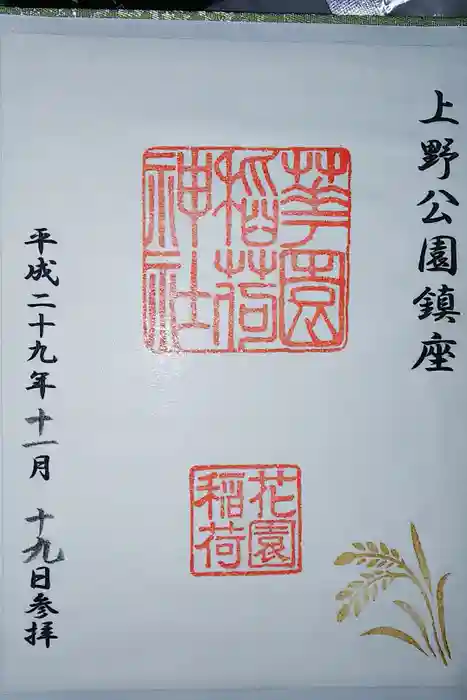 上野公園鎮座
華園
稲荷
神社
花園
稲荷
平成二十九年十一月 十九日参拝